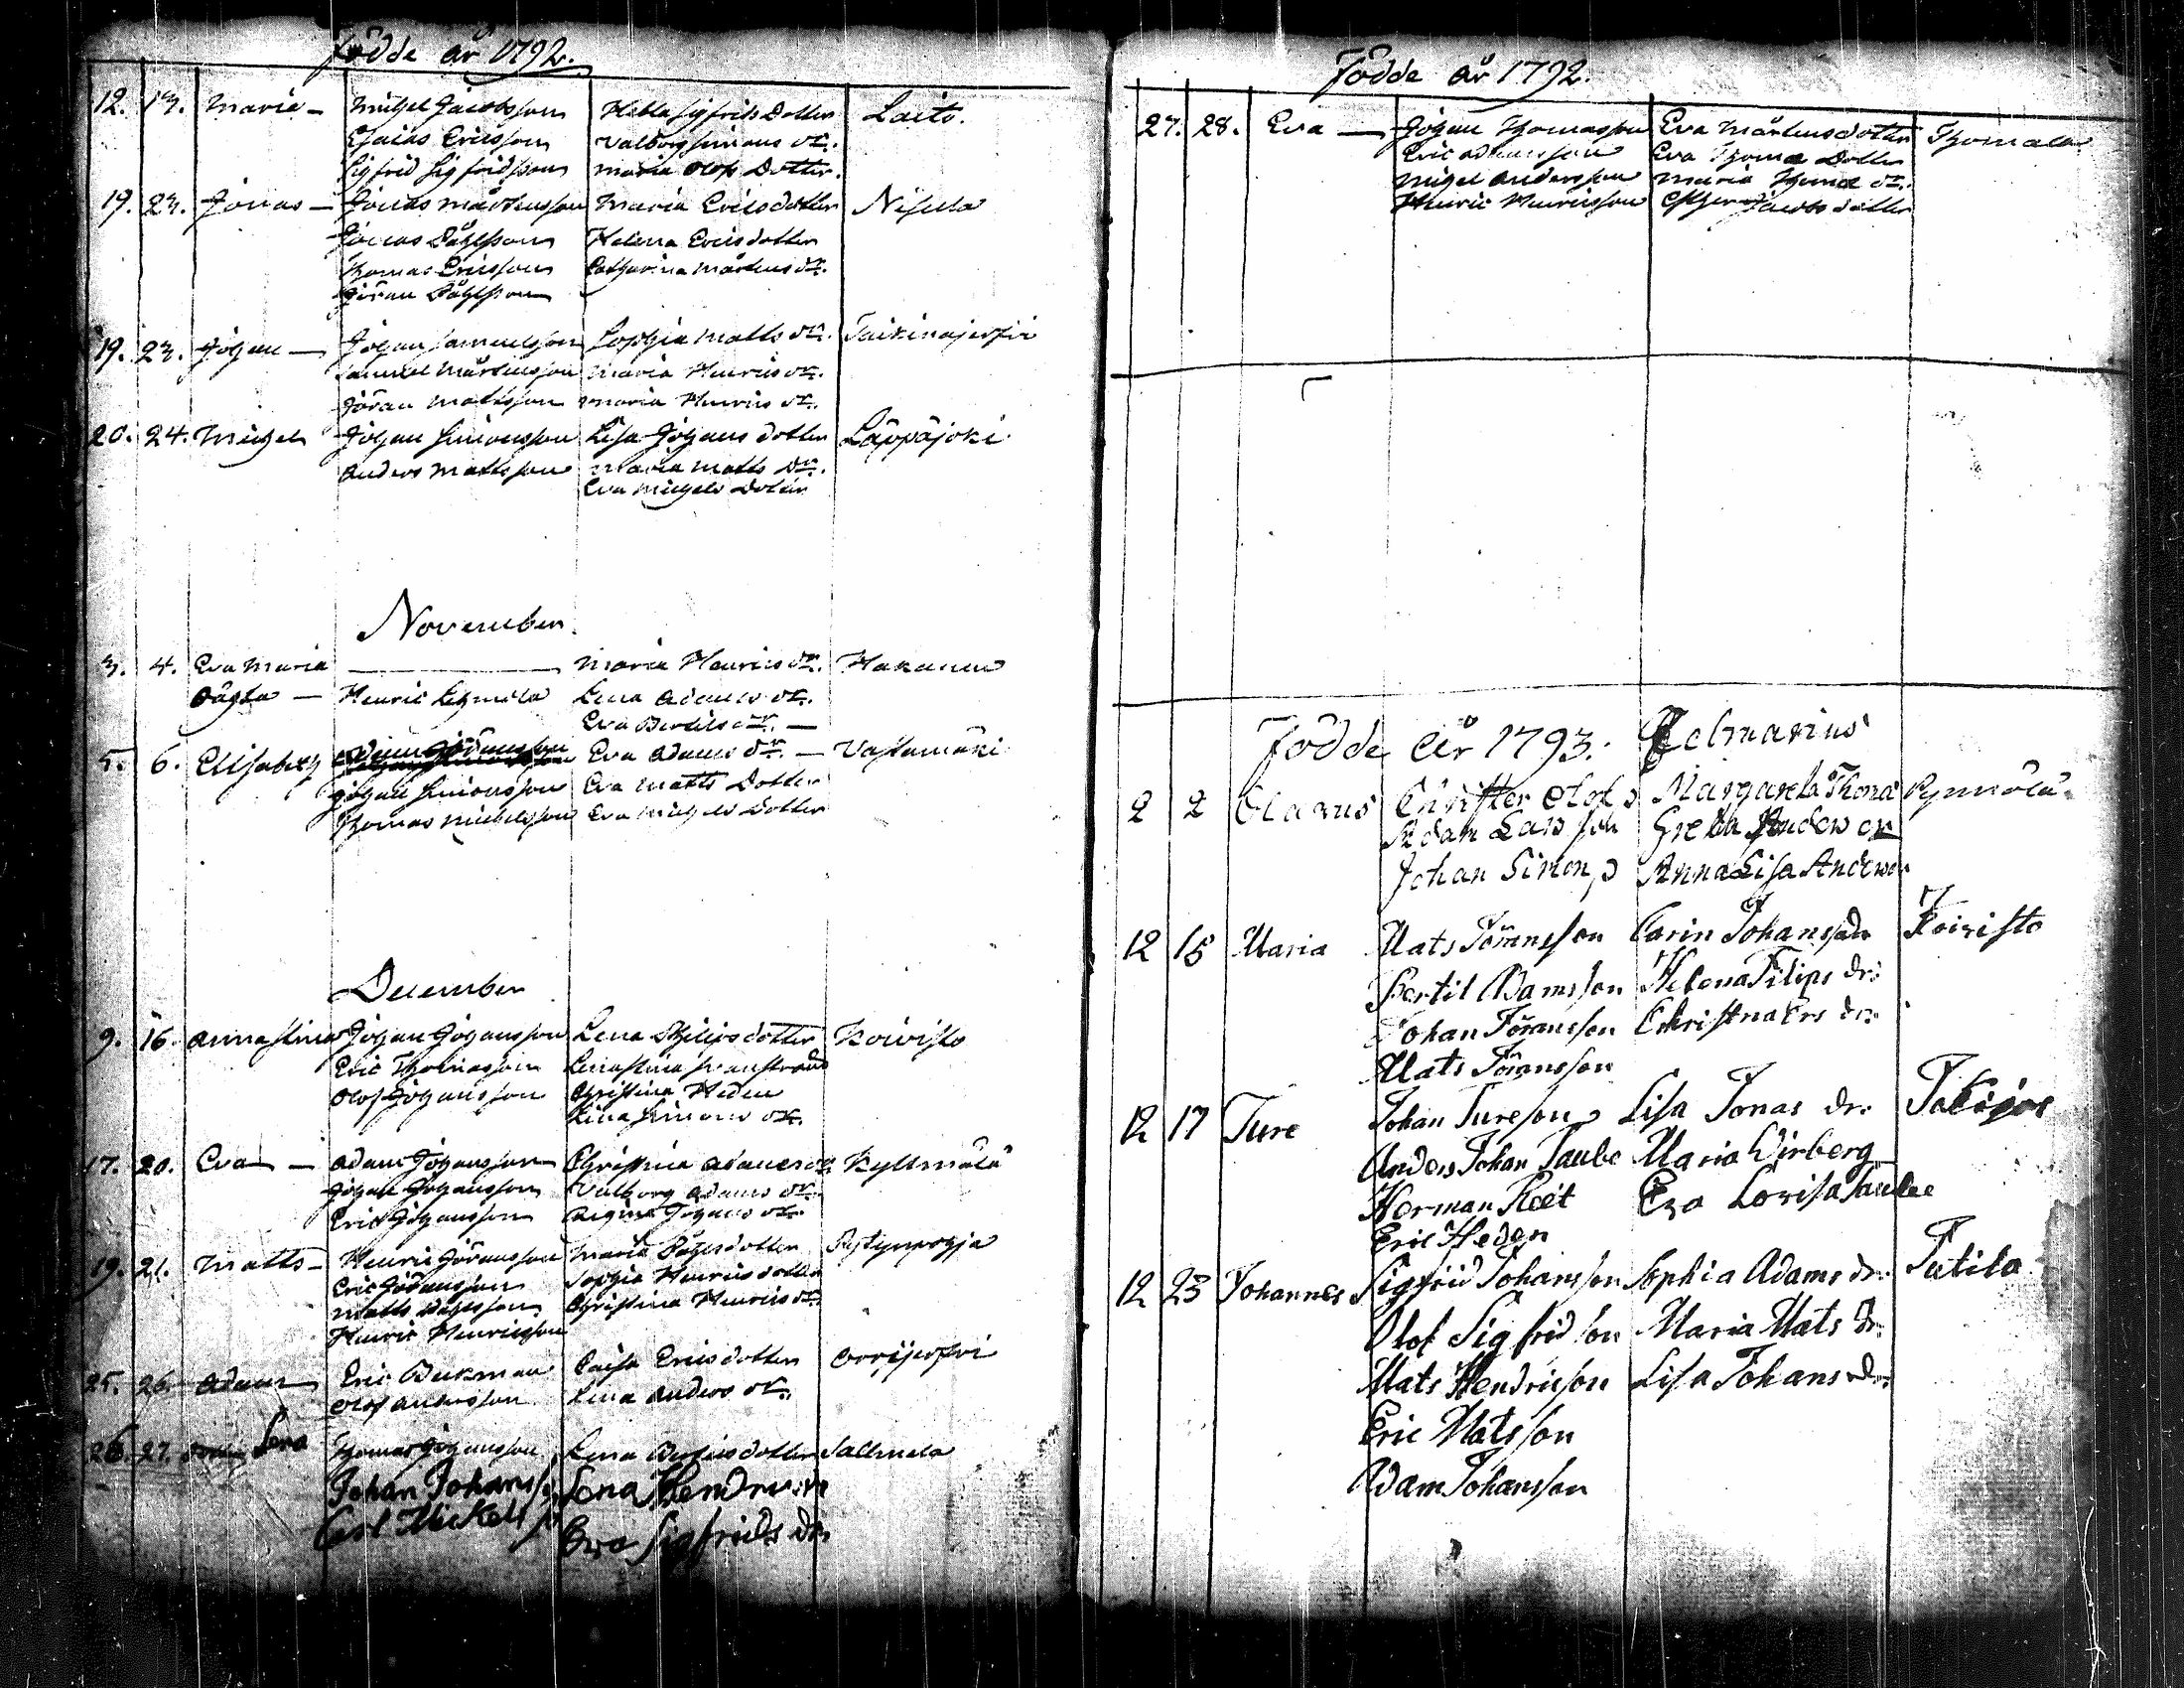 Födde år 1792.
12. 13. Maria - Michel Jacobsson Hebla Sigfrids Dotter Laito.
Esaias Ericsson Valborg Simons dr.
Sigfrid Sigfridsson Maria Olofs Dotter.
19. 23. Jonas - Jonas Mårtensson Maria Ericsdotter Nisula
Jonas Påhlsson Helena Ericsdotter
Thomas Ericsson Catharina Mårtens dr.
Göran Påhlsson
19. 23. Johan - Johan Samuelsson Sophia Matts dr.
Samuel Mårtensson Maria Henrics dr.
Göran Mattsson Maria Henrics dr.
20. 24. Michel Johan Simonsson Lisa Johans dotter Läppäjoki
Anders Mattsson Maria Matts dr.
Eva Michels Dotter
November
3. 4. Eva Maria Maria Henrics dr.
oägta - Henric Lena Adams dr.
Eva Bertils dr. -
5. 6. Elisabeth Eva Adams dr. - Vastamäki
Johan Simonsson Eva Matts Dotter
Thomas Michelsson Eva Michels Dotter
December
9. 16. Anna Stina Johan Johansson Lena Philipsdotter Koivisto
Eric Thomasson Lena Stina
Olof Johansson Christina Heden
Lina Simons dr.
17. 20. Eva - Adam Johansson Christina Adams dr. Kyllmälä
Johan Johansson Valborg Adams dr.
Eric Johansson Regina Johans dr.
19. 21. Matts - Henric Göransson Maria Påhlsdotter
Eric Göransson Sophia Henricsdotter
Matts Påhlsson Christina Henrics dr.
Henric Henricsson
25. 26. Adam Eric Beckman Caisa Ericsdotter Orrijerfvi
Olof Andersson Lena Anders dr.
26. 27. Lena Thomas Johansson Lena dotter Sallmela
Johan Johanss. Lena Hendrics dr
Carl Mickelss. Eva Sigfrids dr
Födde år 1792.
27. 28. Eva - Johan Thomasson Eva Mårtensdotter Thomala
Eric Adamsson Eva Thomæ Dotter
Michel Andersson Maria Thomæ dr.
Henric Henricsson Esther Jacobsdotter
Födde år 1793. Februarius
2 2 Olavus Christter Olofs Margareta Thoma
Adam Larsson Greta Anders dr
Johan Simons Anna Lisa Anders dr
12 15 Maria Mats Göransson Carin Johansdr Koivisto
Bertil Adamsson Helena Filips dr.
Johan Göransson Christina Ers dr.
Mats Göransson
12 17 Ture Johan Tureson Lisa Jonas dr.
Anders Johan Taube Maria Wirberg
Herman Reet Eva Lovisa Taube
Eric Heden
12 23 Johannes Sigfrid Johansson Sophia Adams dr. Tatila
Olof Sigfridson Maria Mats dr.
Mats Hendricson Lisa Johans dr.
Eric Matsson
Adam Johansson